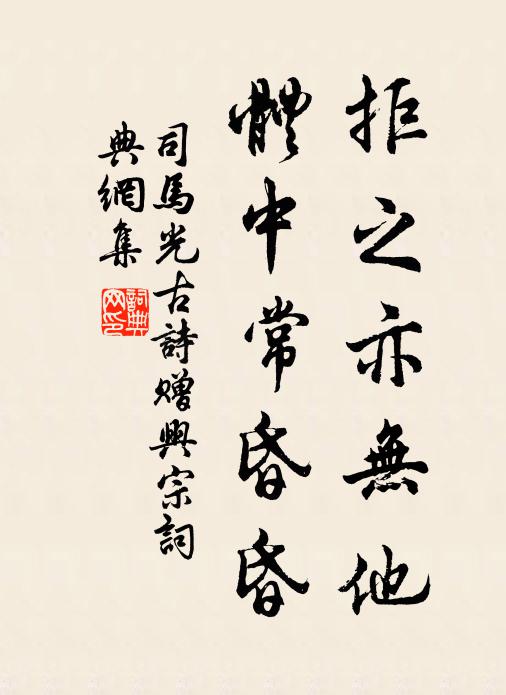 拒之亦無他
體中常昏昏
司馬光古詩贈興宗詞
典網集
詞典
网印